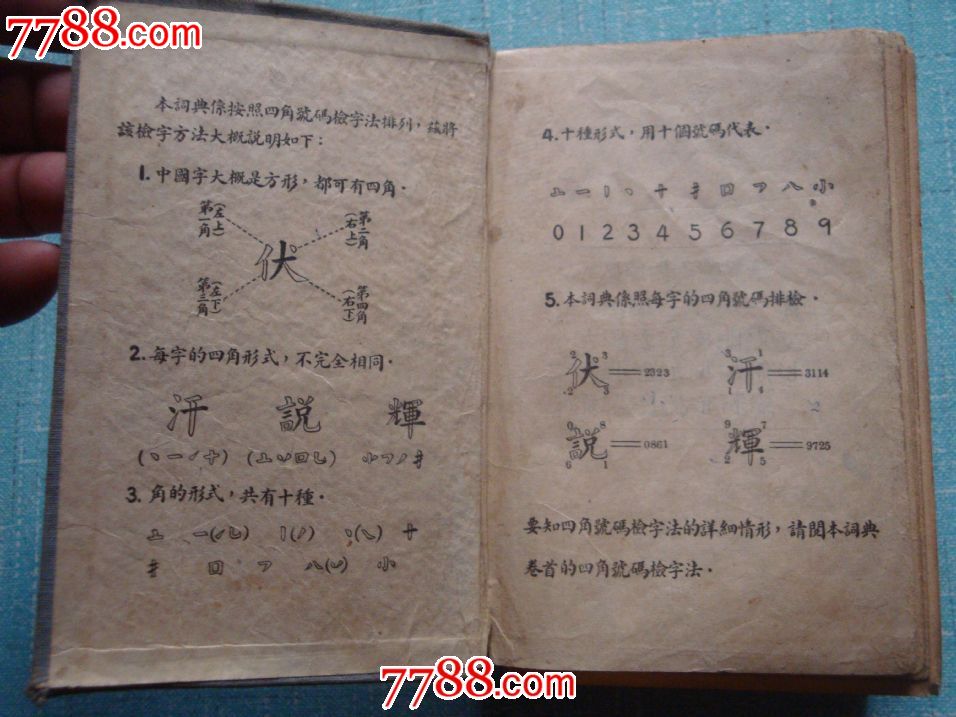 7788.com
7788.com
本詞典係按照四角號碼檢字法排列，茲將
該檢字方法大概説明如下：
1. 中國字大概是方形，都可有四角．
第一角(左上)
第二角(右上)
伏
第三角(左下)
第四角(右下)
2. 每字的四角形式，不完全相同．
汗 説 輝
3. 角的形式，共有十種．
4. 十種形式，用十個號碼代表．
0 1 2 3 4 5 6 7 8 9
5. 本詞典係照每字的四角號碼排檢．
2 3
伏 2323
2 3
3 1
汗 3114
1 4
0 8
説 0861
6 1
9 7
輝 9725
2 5
要知四角號碼檢字法的詳細情形，請閲本詞典
卷首的四角號碼檢字法．
7788.com